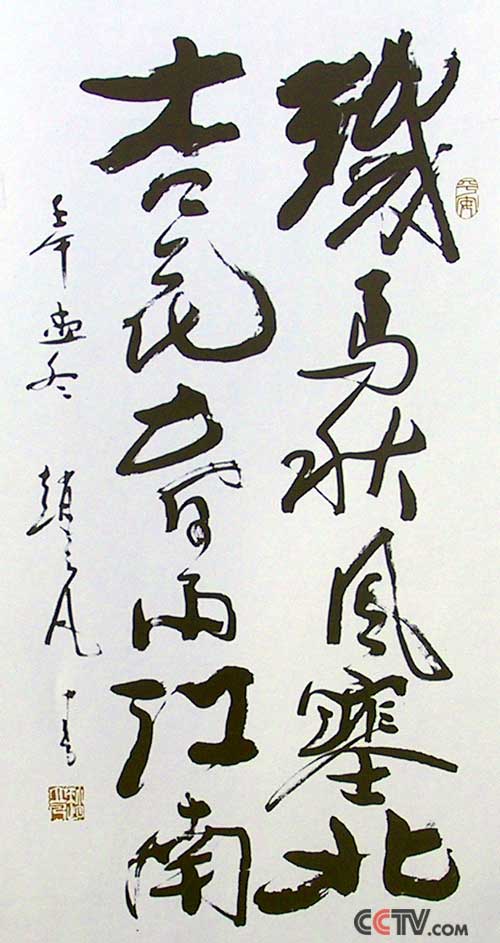 鐵馬秋風塞北
杏花春雨江南
壬午孟冬 趙
CCTV.com